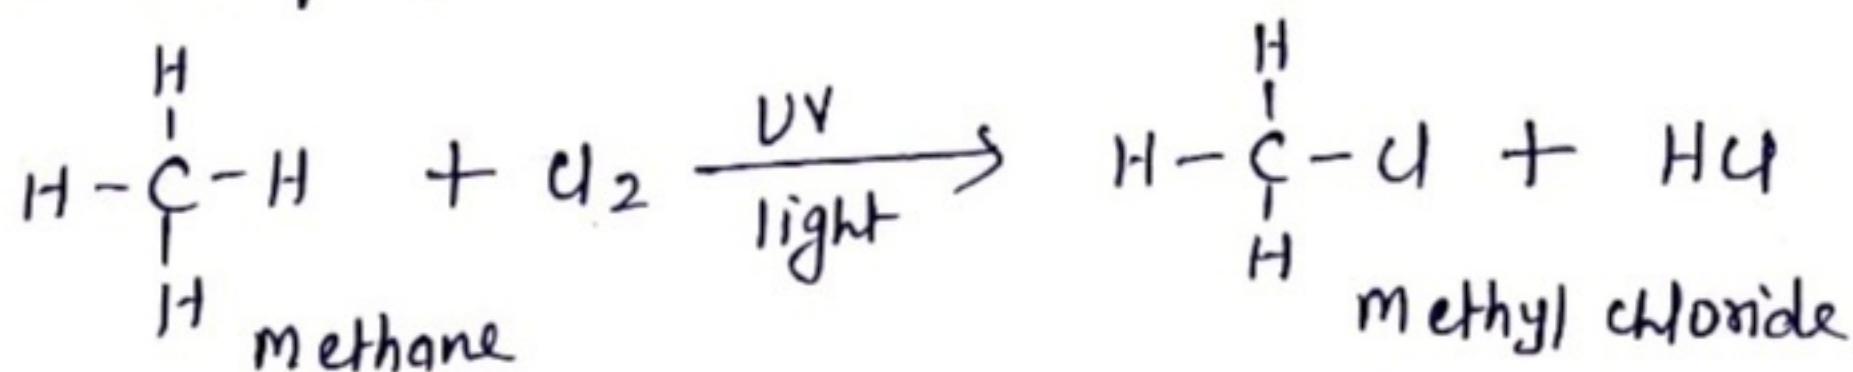 H H
H-C-H + Cl2 UV light → H-C-Cl + HCl
H H
methane methyl chloride